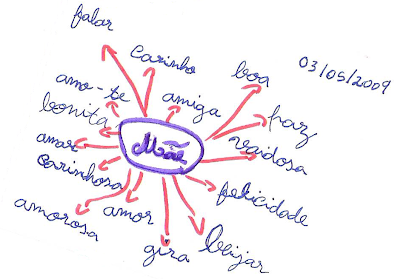 falar
carinho
03/05/2009
boa
amo-te
amiga
bonita
paz
Mãe
vaidosa
amar
carinhosa
felicidade
amorosa
amor
gira
beijar